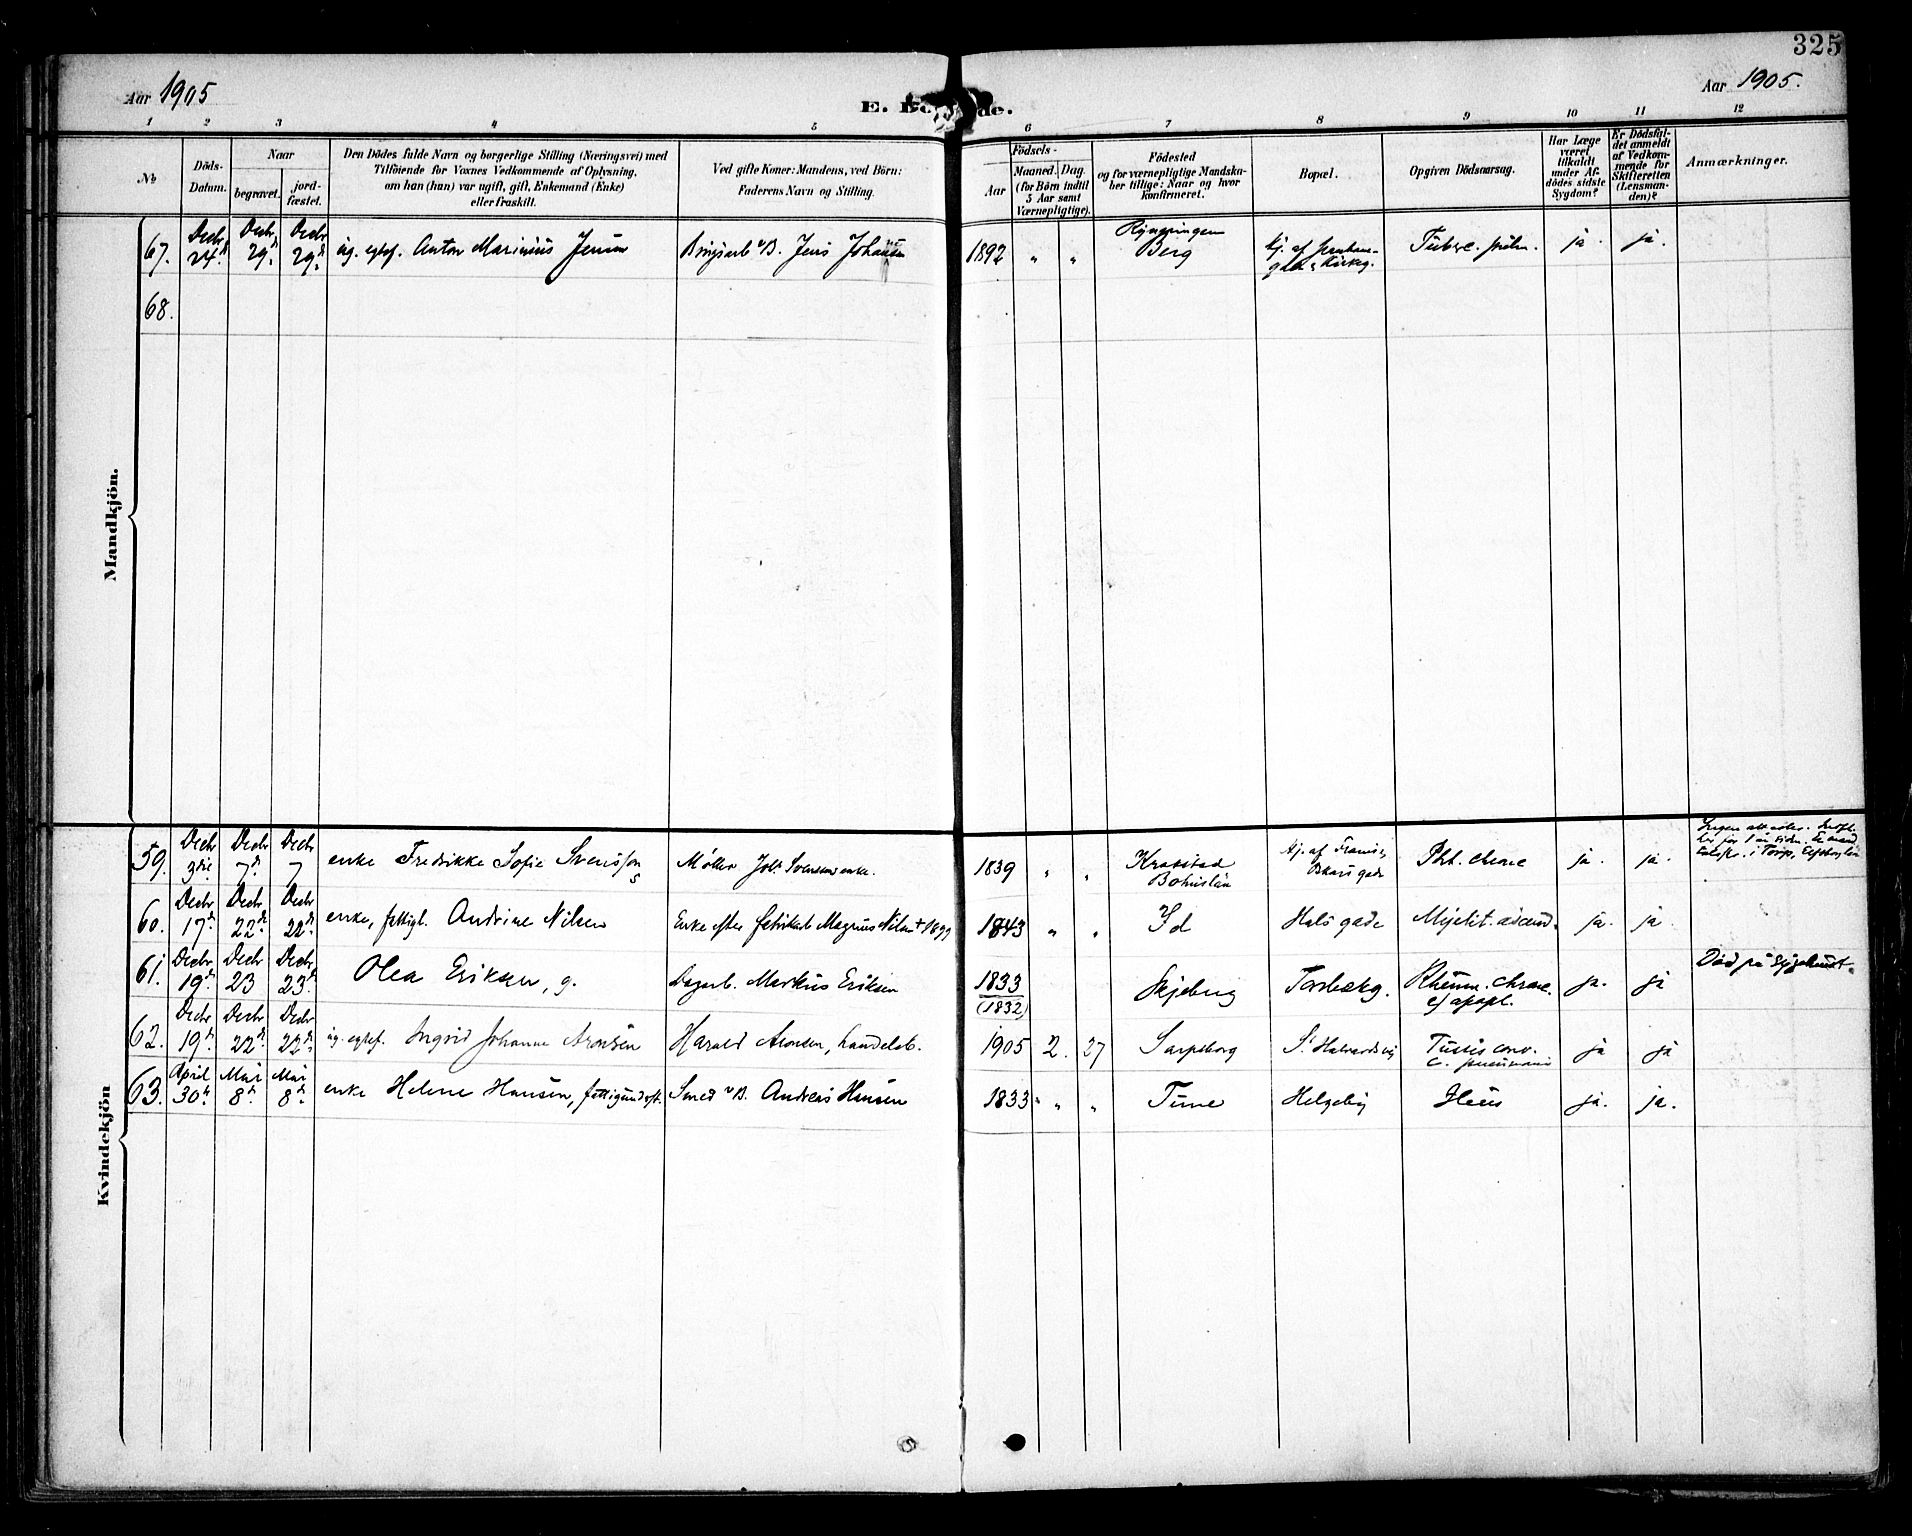 325
Aar 1905
Aar 1905.
E. Be de.
1 2 3 4 5 6 7 8 9 10 11 12
No
Döds-Datum.
Naar
begravet.
jordfæstet.
Den Dödes fulde Navn og borgerlige Stilling (Næringsvei) med
Tilföiende for Voxnes Vedkommende af Oplysning,
om han (hun) var ugift, gift, Enkemand (Enke)
eller fraskilt.
Ved gifte Koner: Mandens, ved Börn:
Faderens Navn og Stilling.
Födsels-
Aar
Maaned. Dag.
(for Börn indtil
5 Aar samt
Værnepligtige).
Födested
og for værnepligtige Mandskaber tillige: Naar og hvor
konfirmeret.
Bopæl.
Opgiven Dödsaarsag.
Har Læge
været
tilkaldt
under Afdödes sidste
Sygdom?
Er Dödsfaldet anmeldt
af Vedkommende for
Skifteretten
(Lensmanden)?
Anmærkninger.
Mandkjön.
67. Decbr 24d Decbr 29d Decbr 29d ug. egtef. Anton Marinius Jensen Jens Johansen 1892 " " Berg Tuberc. pulm. ja. ja.
68.
Kvindekjön
59. Decbr 3die Decbr 7d Decbr 7 enke Fredrikke Sofie Svensson Møller Joh. Svensens enke. 1839 " " Krokstad Bohuslän Oskars gade Pht. chrone ja. ja.
60. Decbr 17d Decbr 22d Decbr 22d enke, fattigl. Andrine Nilsen Enke efter fabrikarb Magnus Nilsen † 1899 1843 " " Id Hals gade Myelit. ascend. ja. ja.
61. Decbr 19d Decbr 23 Decbr 23d Olea Eriksen, g. Dagarb. Markus Eriksen 1833 (1832) Skjeberg Torsbækg. Rheum. chrone. ef apopl. ja. ja Død på Sygehuset.
62. Decbr 19d Decbr 22d Decbr 22d ug. egtef. Ingrid Johanne Aronsen Harald Aronsen, handelsb. 1905 2. 27 Sarpsborg St Halvardsvej Tussis conv. c. pneumoni ja ja
63. April 30te Mai 8d Mai 8d enke Helene Hansen, fattigunderst. Smed v B. Andreas Hansen 1833 " " Tune Helgeby Ileus ja. ja.